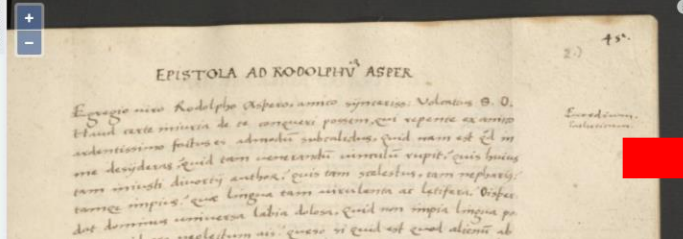 45.
2.)
EPISTOLA AD RODOLPHŪ ASPER
Egregio viro Rodolpho Aspero, amico synceriss: Volcatius S. D.
Haud certe iniuria de te conqueri possem, qui repente ex amico
ardentissimo factus es admodū subcaledus, quid nam est qd in
me desyderas, quid tam venerandū vinculū rupit, quis huius
tam iniusti divortij author, quis tam scelestus, tam nepharius,
tamqz impius, quæ lingua tam virulenta ac letifera. Disper
dat dominus universa labia dolosa, quid non impia lingua po
neglectum qui quero si quid est quod alienū ab
Exordium